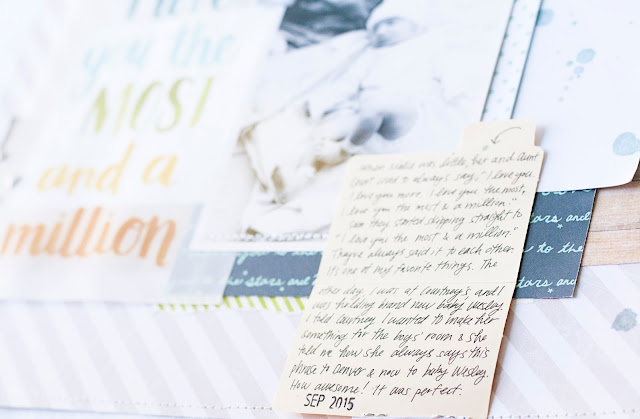 I love
you the
MOST
and a
million
When Malia was little, her and Aunt
Court used to always say, "I love you.
I love you more. I love you the most,
I love you the most & a million."
Soon they started skipping straight to
"I love you the most & a million."
They've always said it to each other.
It's one of my favorite things. The
other day, I was at Courtney's and I
was holding brand new baby Wesley.
I told Courtney I wanted to make her
something for the boys' room & she
told me how she always says this
phrase to Denver & now to baby Wesley.
How awesome! It was perfect.
SEP 2015
stars and
to the
stars and
the stars and